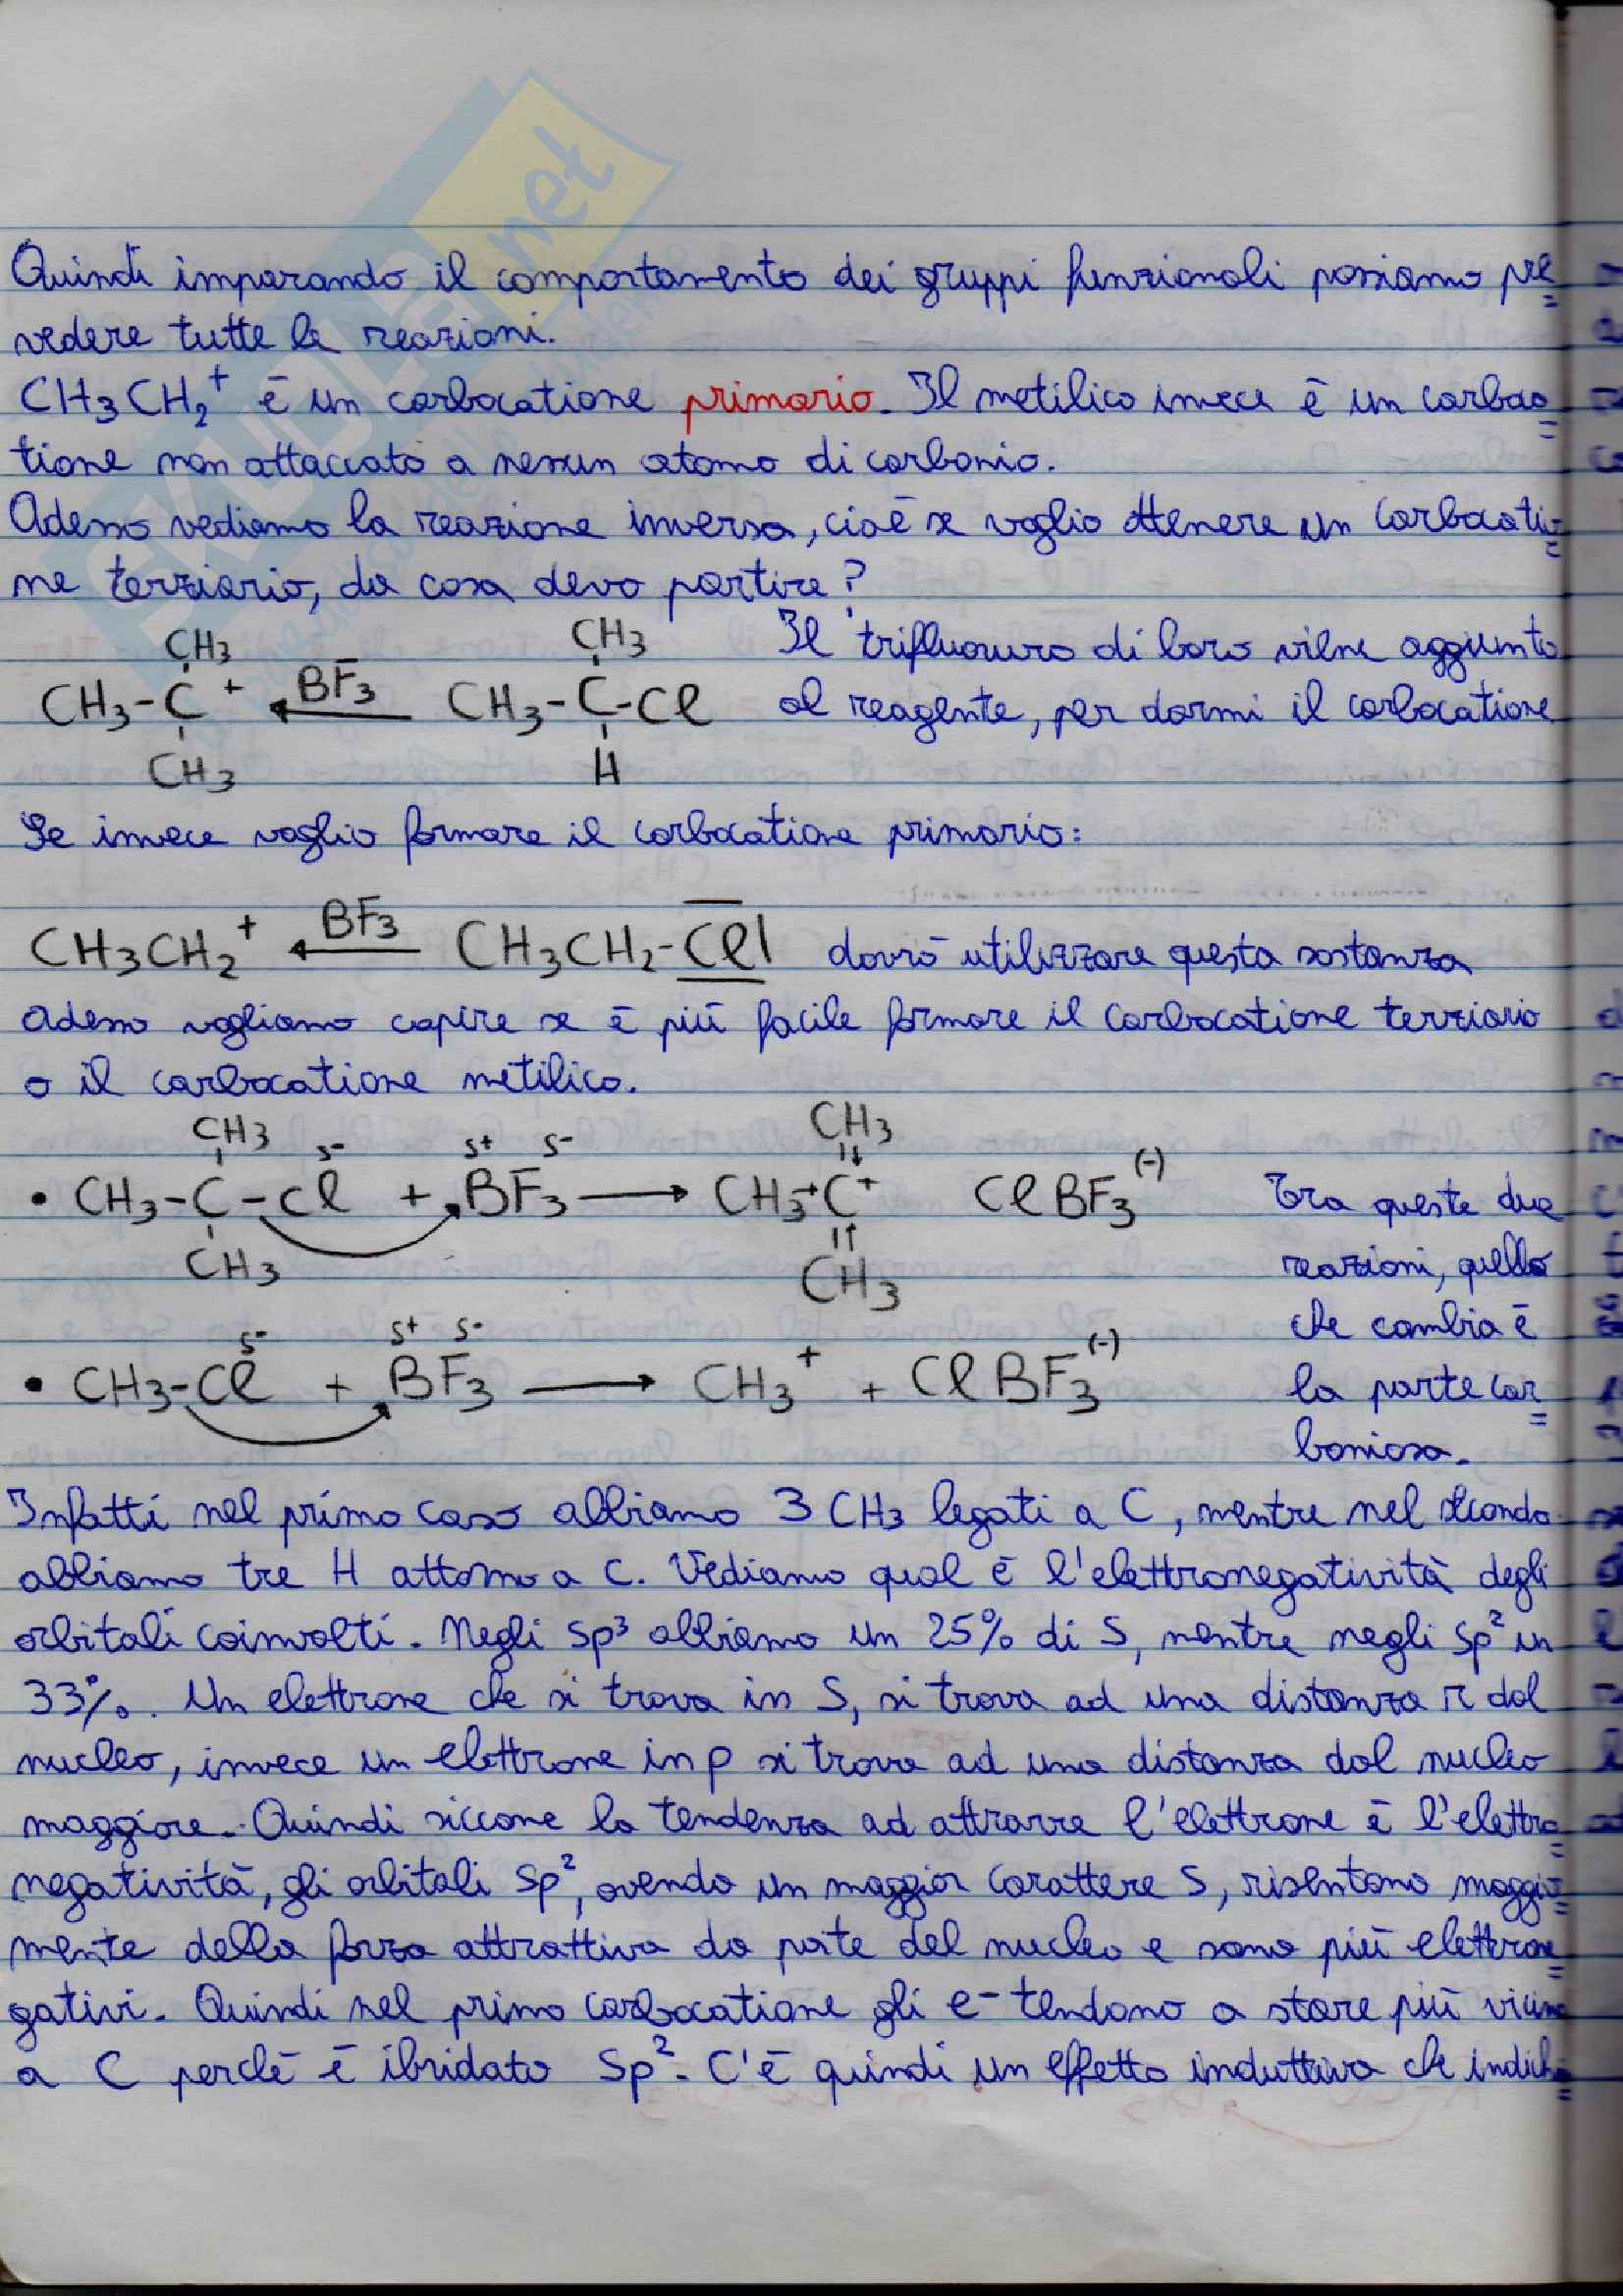 SKUOLA.net
Quindi imparando il comportamento dei gruppi funzionali possiamo pre=
vedere tutte le reazioni.
CH3CH2+ è un carbocatione primario. Il metilico invece è un carboca=
tione non attaccato a nessun atomo di carbonio.
Adesso vediamo la reazione inversa, cioè se voglio ottenere un carbocatio=
ne terziario, da cosa devo partire?
CH3 CH3 Il trifluoruro di boro viene aggiunto
CH3-C+ ← BF3 CH3-C-Cl al reagente, per darmi il carbocatione
CH3 H
Se invece voglio formare il carbocatione primario:
CH3CH2+ ← BF3 CH3CH2-Cl dovrò utilizzare questa sostanza
adesso vogliamo capire se è più facile formare il carbocatione terziario
o il carbocatione metilico.
CH3 δ- δ+ δ- CH3
• CH3-C-Cl + BF3 → CH3→C+ ClBF3(-) Tra queste due
CH3 CH3 reazioni, quello
δ- δ+ δ- che cambia è
• CH3-Cl + BF3 → CH3+ + ClBF3(-) la parte car=
boniosa.
Infatti nel primo caso abbiamo 3 CH3 legati a C, mentre nel secondo
abbiamo tre H attorno a C. Vediamo qual è l'elettronegatività degli
orbitali coinvolti. Negli sp3 abbiamo un 25% di S, mentre negli sp2 un
33%. Un elettrone che si trova in S, si trova ad una distanza r dal
nucleo, invece un elettrone in p si trova ad una distanza dal nucleo
maggiore. Quindi siccome la tendenza ad attrarre l'elettrone è l'elettro=
negatività, gli orbitali sp2, avendo un maggior carattere S, risentono maggior=
mente della forza attrattiva da parte del nucleo e sono più elettrone=
gativi. Quindi nel primo carbocatione gli e- tendono a stare più vicino
a C perchè è ibridato sp2. C'è quindi un effetto induttivo che indich=